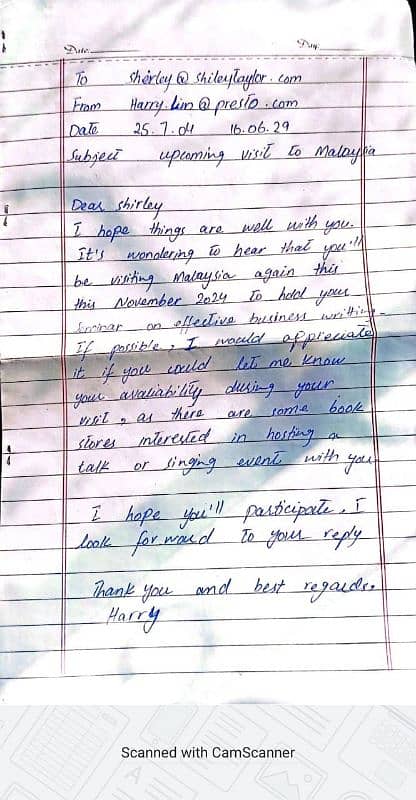 Date. Day.
To shirley @ shileytaylor . com
From Harry.lim @ presto . com
Date 25.7.04 16.06.29
Subject upcoming visit to Malaysia
Dear shirley
I hope things are well with you.
It's wondering to hear that you'll
be visiting Malaysia again this
this November 2024 to hold your
Seminar on effective business writting.
If possible, I would appreciate
it if you could let me know
your avaliability during your
visit, as there are some book
stores interested in hosting a
talk or singing event with you
I hope you'll participate. I
look forward to your reply
Thank you and best regards.
Harry
Scanned with CamScanner